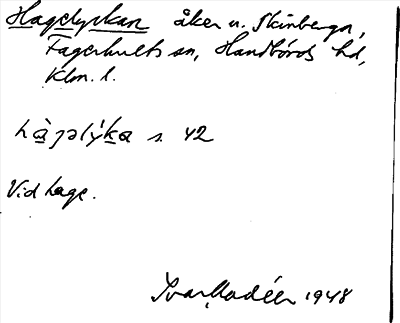 Hagelyckan åker u. Skinbergn,
Fagerhults sn, Handbörds hd,
Klm. l.
hàgəlýka s. 42
Vid hage.
Ivar Modéer 1948